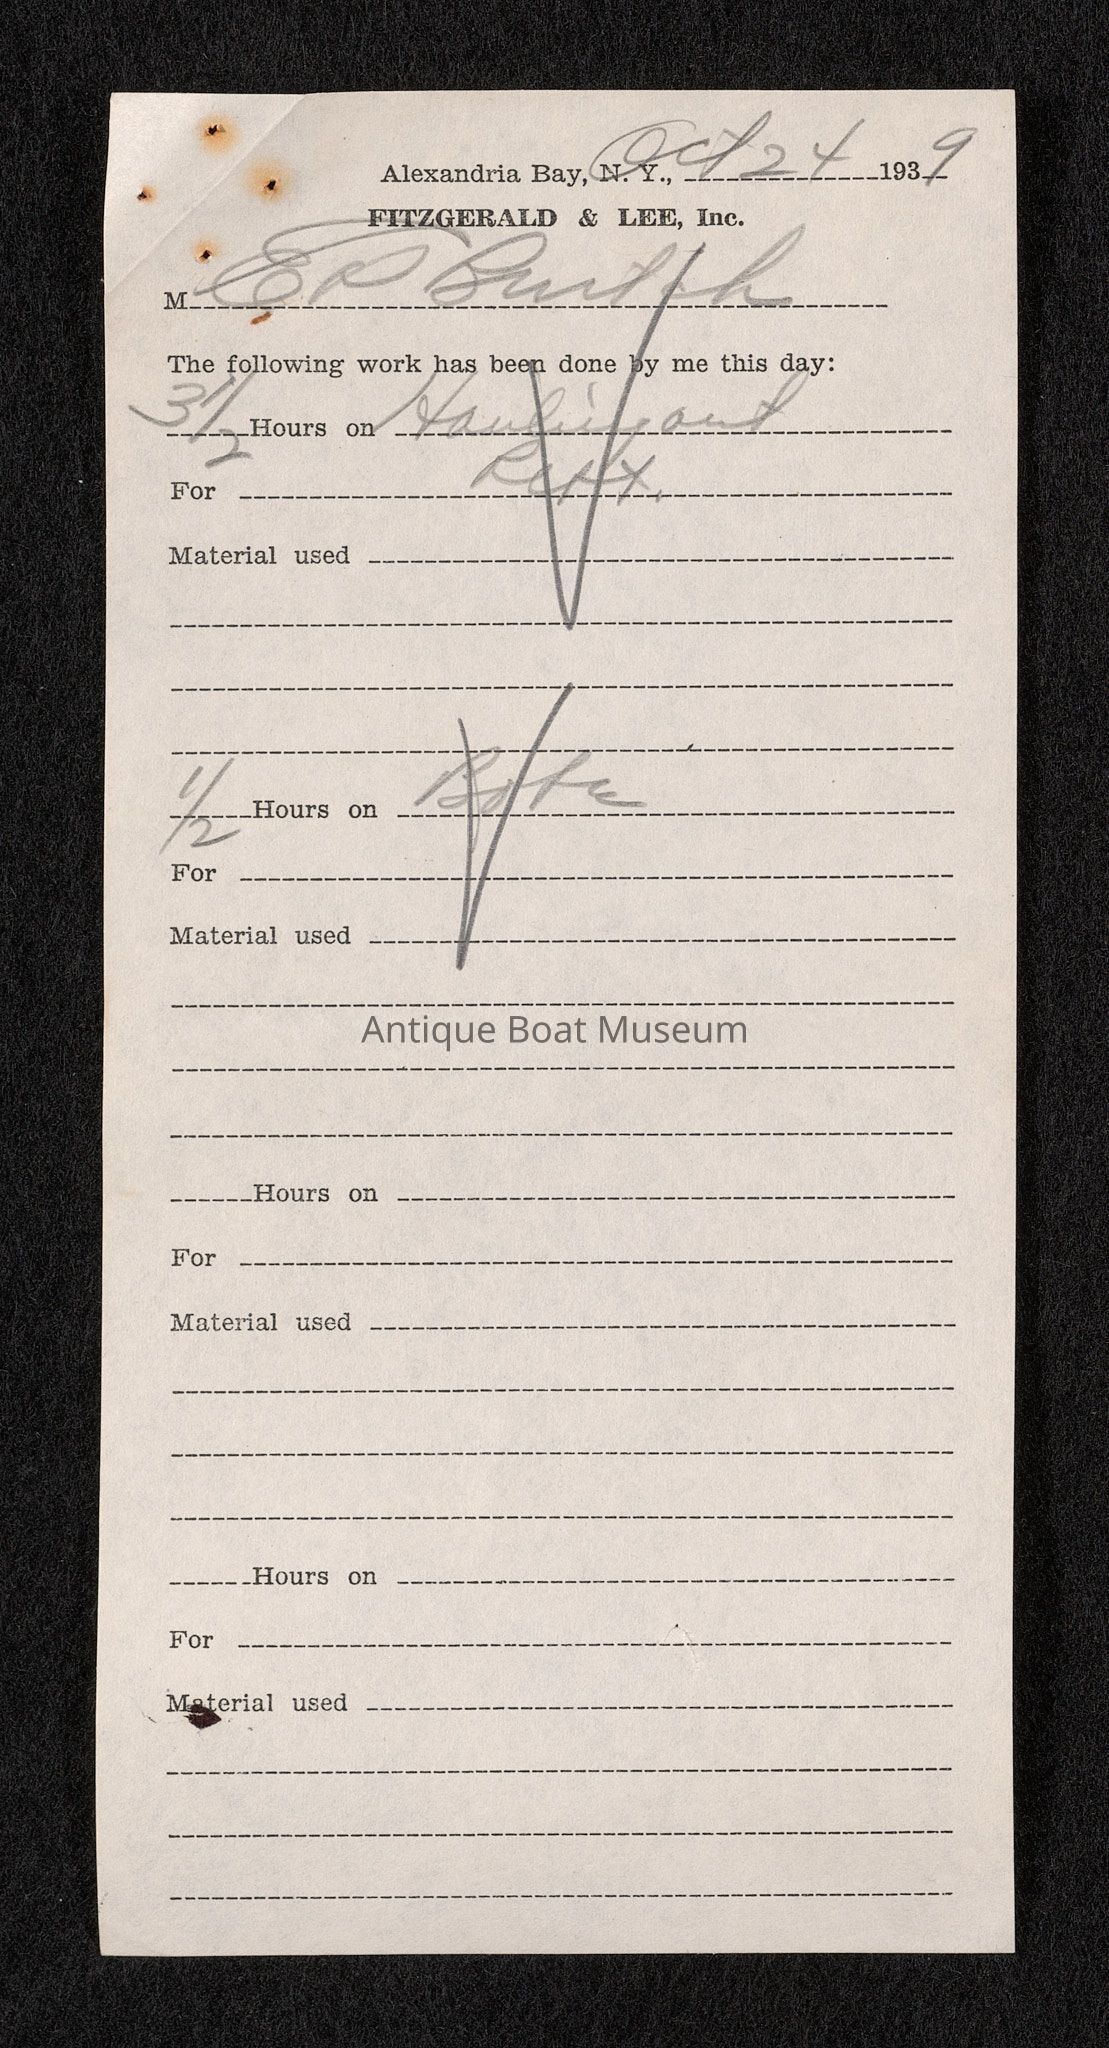 Alexandria Bay, N. Y., Oct 24 1939
FITZGERALD & LEE, Inc.
M Ed
The following work has been done by me this day:
3 1/2 Hours on Hauling out
For
Material used
1/2 Hours on
For
Material used
Antique Boat Museum
Hours on
For
Material used
Hours on
For
Material used